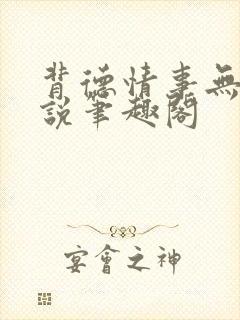 背德情事無
說筆趣閣
宴會之神